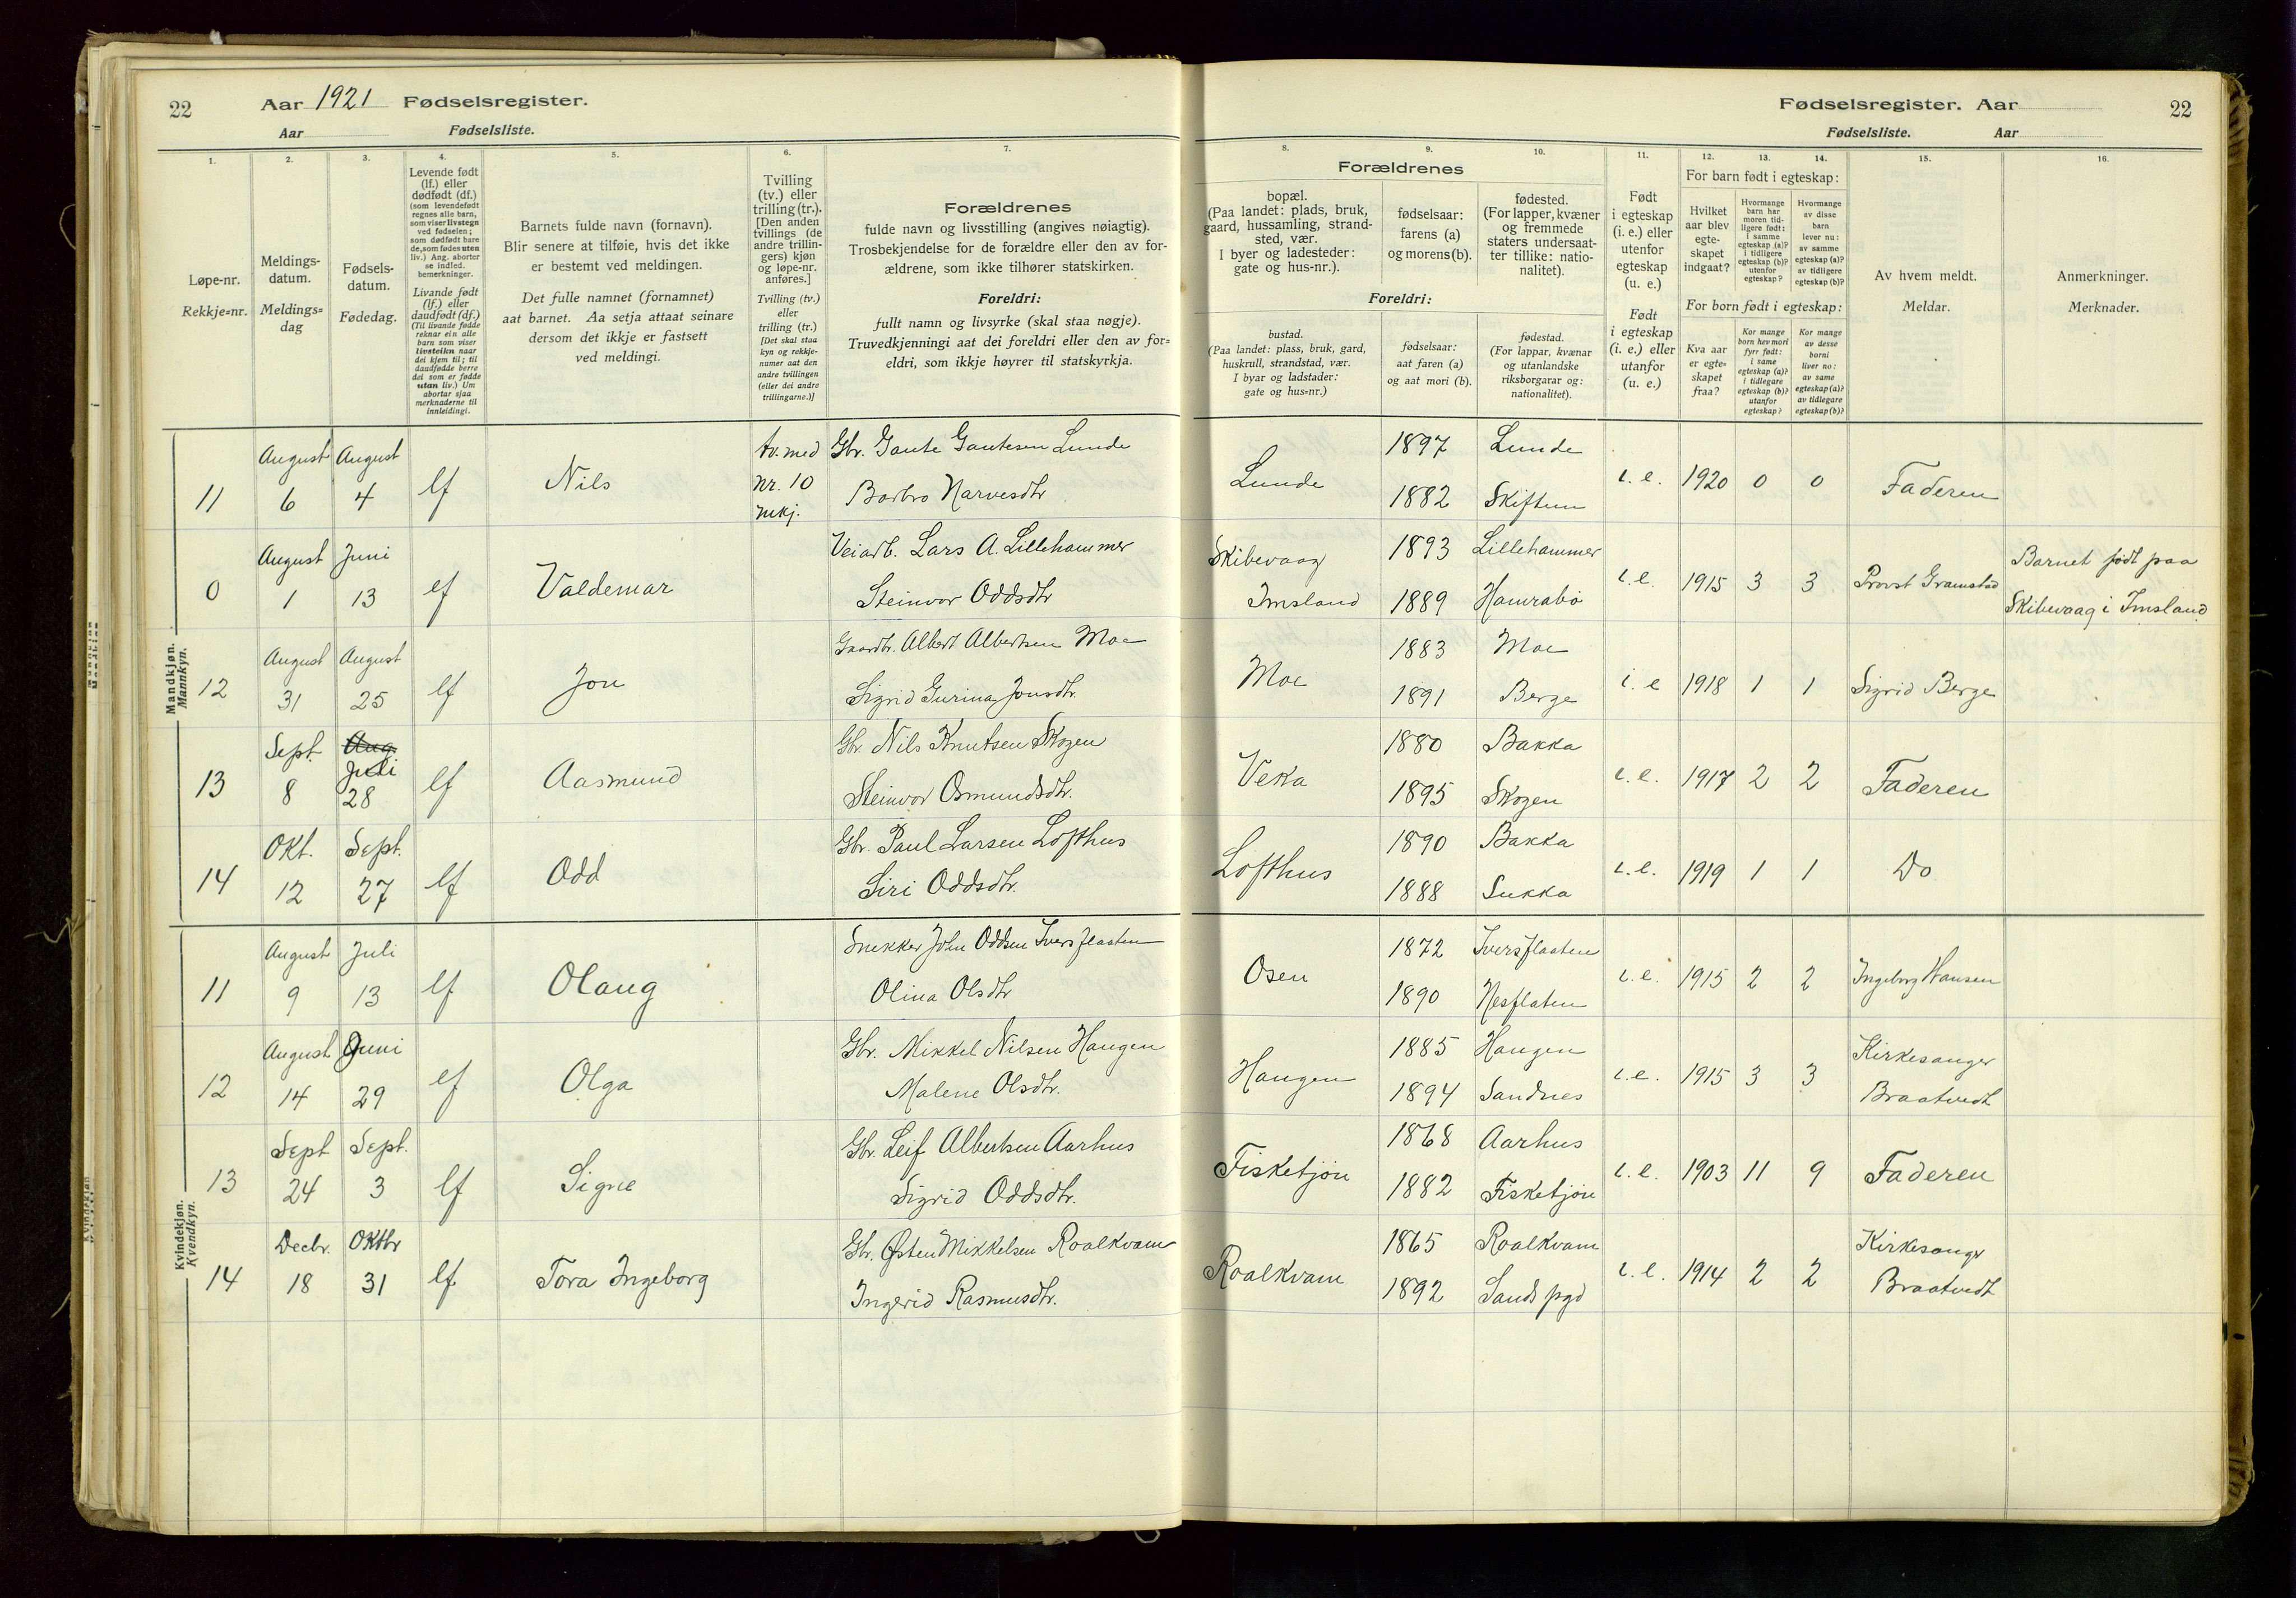 22 Aar 1921 Fødselsregister.
Aar Fødselsliste.
Fødselsregister. Aar 22
Fødselsliste. Aar
1. 2. 3. 4. 5. 6. 7. 8. 9. 10. 11. 12. 13. 14. 15. 16.
Løpe-nr.
Rekkje=nr.
Meldings-
datum.
Meldings=
dag
Fødsels-
datum.
Fødedag.
Levende født
(lf.) eller
dødfødt (df.)
(som levendefødt
regnes alle barn,
som viser livstegn
ved fødselen;
som dødfødt bare
de, som fødes uten
liv.) Ang. aborter
se indled.
bemerkninger.
Livande født
(lf.) eller
daudfødt (df.)
(Til livande fødde
reknar ein alle
barn som viser
livsteikn naar
dei kjem til; til
daudfødde berre
dei som er fødde
utan liv.) Um
abortar sjaa
merknaderne til
innleidingi.
Barnets fulde navn (fornavn).
Blir senere at tilføie, hvis det ikke
er bestemt ved meldingen.
Det fulle namnet (fornamnet)
aat barnet. Aa setja attaat seinare
dersom det ikkje er fastsett
ved meldingi.
Tvilling
(tv.) eller
trilling (tr.).
[Den anden
tvillings (de
andre trillin-
gers) kjøn
og løpe-nr.
anføres.]
Tvilling (tv.)
eller
trilling (tr.)
[Det skal staa
kyn og rekkje-
numer aat den
andre tvillingen
(eller dei andre
trillingarne.)]
Forældrenes
fulde navn og livsstilling (angives nøiagtig).
Trosbekjendelse for de forældre eller den av for-
ældrene, som ikke tilhører statskirken.
Foreldri:
fullt namn og livsyrke (skal staa nøgje).
Truvedkjenningi aat dei foreldri eller den av for=
eldri, som ikkje høyrer til statskyrkja.
Forældrenes
bopæl.
(Paa landet: plads, bruk,
gaard, hussamling, strand-
sted, vær.
I byer og ladesteder:
gate og hus-nr.).
fødselsaar:
farens (a)
og morens (b).
fødested.
(For lapper, kvæner
og fremmede
staters undersaat-
ter tillike: natio-
nalitet).
Foreldri:
bustad.
(Paa landet: plass, bruk, gard,
huskrull, strandstad, vær.
I byar og ladstader:
gate og hus=nr.)
fødselsaar:
aat faren (a)
og aat mori (b).
fødestad.
(For lappar, kvænar
og utanlandske
riksborgarar og:
nationalitet).
Født
i egteskap
(i. e.) eller
utenfor
egteskap
(u. e.)
Født
i egteskap
(i. e.) eller
utanfor
(u. e.)
For barn født i egteskap:
Hvilket
aar blev
egte-
skapet
indgaat?
Hvormange
barn har
moren tid-
ligere født:
i samme
egteskap (a)?
i tidligere
egteskap (b)?
utenfor
egteskap?
Hvormange
av disse
barn
lever nu:
av samme
egteskap (a)?
av tidligere
egteskap (b)?
For born født i egteskap:
Kva aar
er egte=
skapet
fraa?
Kor mange
born hev mori
fyrr født:
i same
egteskap (a)?
i tidlegare
egteskap (b)?
utanfor
egteskap?
Kor mange
av desse
borni
liver no:
av same
egteskap (a)?
av tidlegare
egteskap (b)?
Av hvem meldt.
Meldar.
Anmerkninger.
Merknader.
Mandkjøn.
Mannkyn.
11 August 6 August 4 lf Nils tv. med nr. 10 mkj. Gbr. Gaute Gautesen Lunde
Barbro Narvesdtr Lunde 1897 Lunde
1882 Skiftun i. e. 1920 0 0 Faderen
0 August 1 Juni 13 lf Valdemar Veiarb. Lars A. Lillehammer
Steinvor Oddsdtr Skibevaag
Imsland 1893 Lillehammer
1889 Hamrabø i. e. 1915 3 3 Provst Gramstad Barnet født paa
Skibevaag i Imsland
12 August 31 August 25 lf Jon Gaardbr. Albert Albertsen Moe
Sigrid Gurina Jonsdtr. Moe 1883 Moe
1891 Berge i. e 1918 1 1 Sigrid Berge
13 Sept. 8 Aug. Juli 28 lf Aasmund Gbr. Nils Knutsen Skogen
Steinvor Osmundsdtr. Veka 1880 Bakka
1895 Skogen i. e. 1917 2 2 Faderen
14 Okt. 12 Sept. 27 lf Odd Gbr. Paul Larsen Lofthus
Siri Oddsdtr. Lofthus 1890 Bakka
1888 Sukka i. e. 1919 1 1 Do
Kvindekjøn.
Kvendkyn.
11 August 9 Juli 13 lf Olaug Snekker John Oddsen Iversflaaten
Olina Olsdtr Osen 1872 Iversflaaten
1890 Nesflaten i. e. 1915 2 2 Ingeborg Hansen
12 August 14 Juni 29 lf Olga Gbr. Mikkel Nilsen Haugen
Malene Olsdtr. Haugen 1885 Haugen
1894 Sandnes i. e. 1915 3 3 Kirkesanger
Braatvedt
13 Sept 24 Sept. 3 lf Signe Gbr. Leif Albertsen Aarhus
Sigrid Oddsdtr. Fisketjøn 1868 Aarhus
1882 Fisketjøn i. e. 1903 11 9 Faderen
14 Decbr. 18 Oktbr 31 lf. Tora Ingeborg Gbr. Østen Mikkelsen Roalkvam
Ingerid Rasmusdtr. Roalkvam 1865 Roalkvam
1892 Sands pgd i. e. 1914 2 2 Kirkesanger
Braatvedt